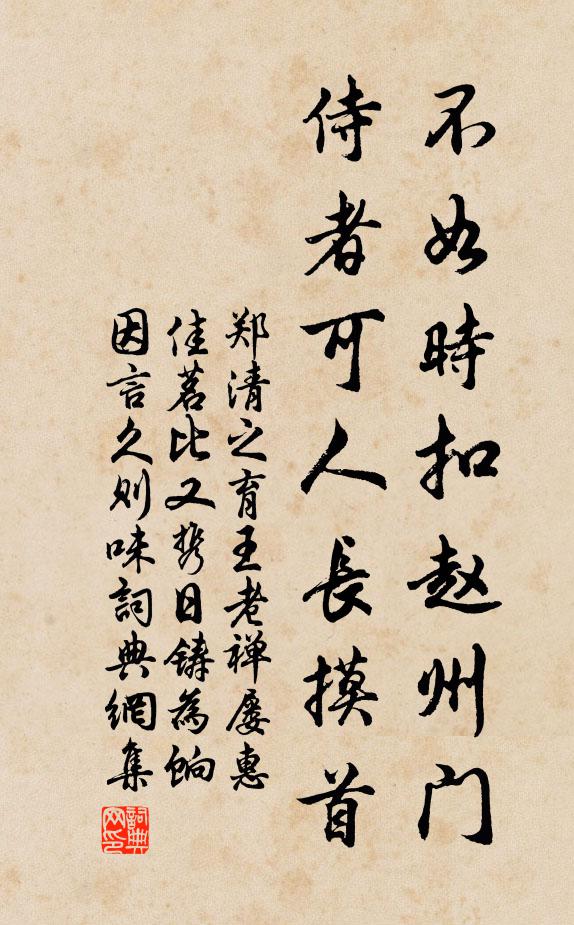 不如時扣赵州门
侍者可人長摸首
郑清之育王老禅屡惠
佳茗比又携日鑄為餉
因言久则味詞典網集
詞典
网印